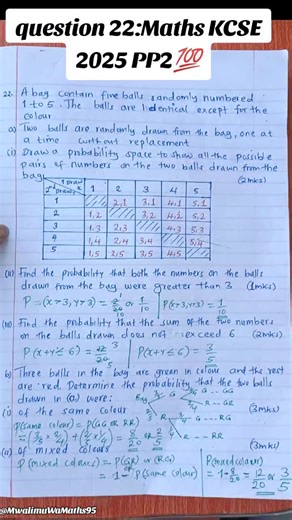 question 22:Maths KCSE
2025 PP2💯
22. A bag contain five balls randomly numbered
1 to 5. The balls are identical except for the
colour
a) Two balls are randomly drawn from the bag, one at
a time without replacement
(i) Draw a probability space to show all the possible
pairs of numbers on the two balls drawn from the
bag (2mks)
1st draw
2nd draw 1 2 3 4 5
1 2,1 3,1 4,1 5,1
2 1,2 3,2 4,2 5,2
3 1,3 2,3 4,3 5,3
4 1,4 2,4 3,4 5,4
5 1,5 2,5 3,5 4,5
(ii) Find the probability that both the numbers on the balls
drawn from the bag were greater than 3 (1mks)
P=(x>3,y>3)=2/20 or 1/10 P(x>3,y>3)=1/10
(iii) Find the probability that the sum of the two numbers
on the balls drawn does not exceed 6 (2mks)
P(x+y≤6)=12/20 3/5 P(x+y≤6)=3/5
b) Three balls in the bag are green in colour and the rest
are red. Determine the probability that the two balls
drawn in (a) were:
(i) of the same colour (3mks)
P(same colour) = P(GG or RR)
=(3/5 x 2/4)+(2/5 x 1/4) = 8/20 or 2/5
Bag
G G...GG
R...GR
R G...RG
R...RR
(ii) of mixed colours (3mks)
P(mixed colours) = P(GR) or (RG)
= 1 - P(same colour)
P(mixed colour)
= 1 - 8/20 = 12/20 or 3/5
@MwalimuWaMaths95